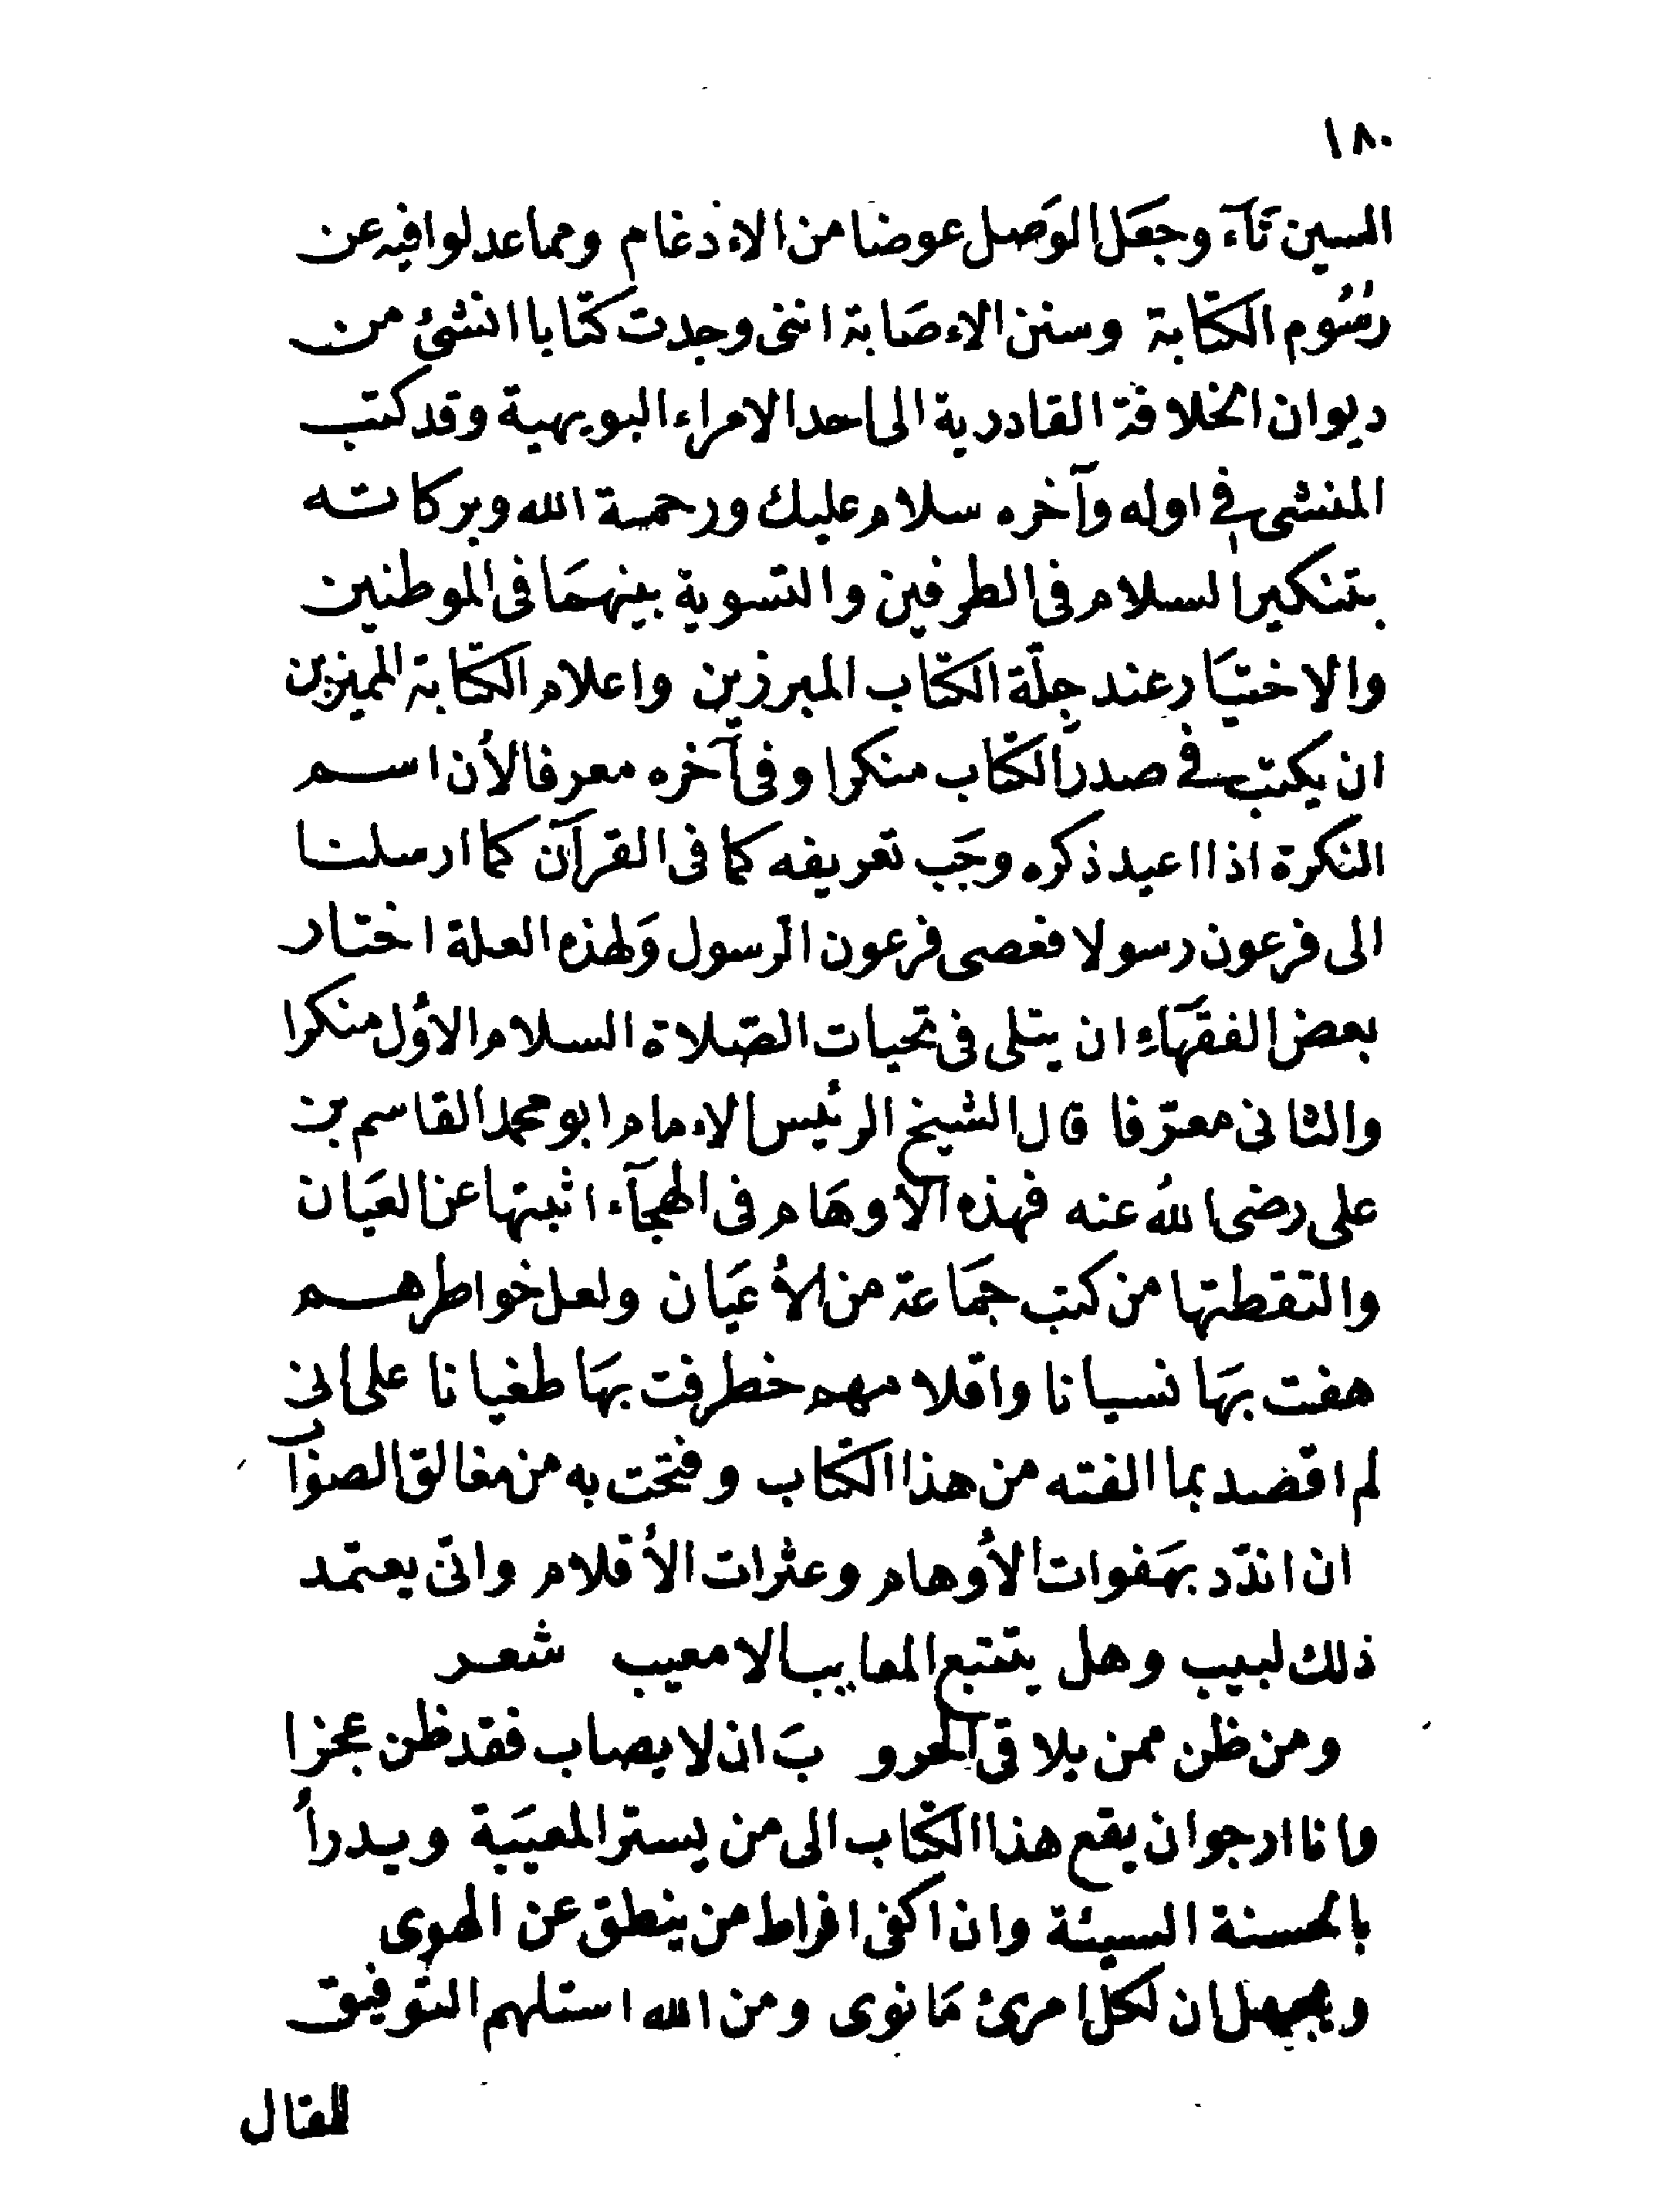 ١٨٠
السين تآء وجعل الوصل عوضا من الاءدغام ومما عدلوا فيه عن
رسُوم الكتابة وسنن الاءصابة اننى وجدت كتابا انشئ من
ديوان الخلافة القادرية الى احد الامراء البويهية وقد كتب
المنشى في اوله وآخره سلام عليك ورحمة الله وبركاته
بتنكير السلام فى الطرفين والتسوية بينهمَا فى الموطنين
والاختيَار عند جلّة الكتاب المبرزين واعلام الكتابة المميزين
ان يكتب في صدر الكتاب منكرا وفى آخره معرفا لأن اسم
النكرة اذا اعيد ذكره وجَب تعريفه كما فى القرآن كما ارسلنا
الى فرعون رسولا فعصى فرعون الرسول وَلهذه العلة اختار
بعض الفقهَاءِ ان يتلى فى تحيات الصّلاة السلام الأول منكرا
والثانى معرّفا قال الشيخ الرئيس الاءمام ابو محمد القاسم بن
على رضى اللهُ عنه فهذه الأوهَام فى الهجآء اثبتها عن العيَان
والتقطتها من كتب جمَاعة من الأعيَان ولعل خواطرهم
هفت بهَا نسيانا واقلامهم خطرفت بهَا طغيانا على انى
لم اقصد بما الفته من هذا الكتاب وفتحت به من مغالق الصواب
ان اندّد بهَفوات الأوهام وعثرات الأقلام وانّى يعتمد
ذلك لبيب وهل يتتبع المعايب الا معيب شعر
ومن ظن ممن يلاقى الحرو بَ ان لا يصاب فقد ظن عجزا
وانا ارجو ان يقع هذا الكتاب الى من يستر المعيَبة ويدرأُ
بالحسنة السيئة وان اكفى افراط من ينطق عن الهوى
ويجهل ان لكل امرئ مَا نوى ومن الله استلهم التوفيق
للمقال